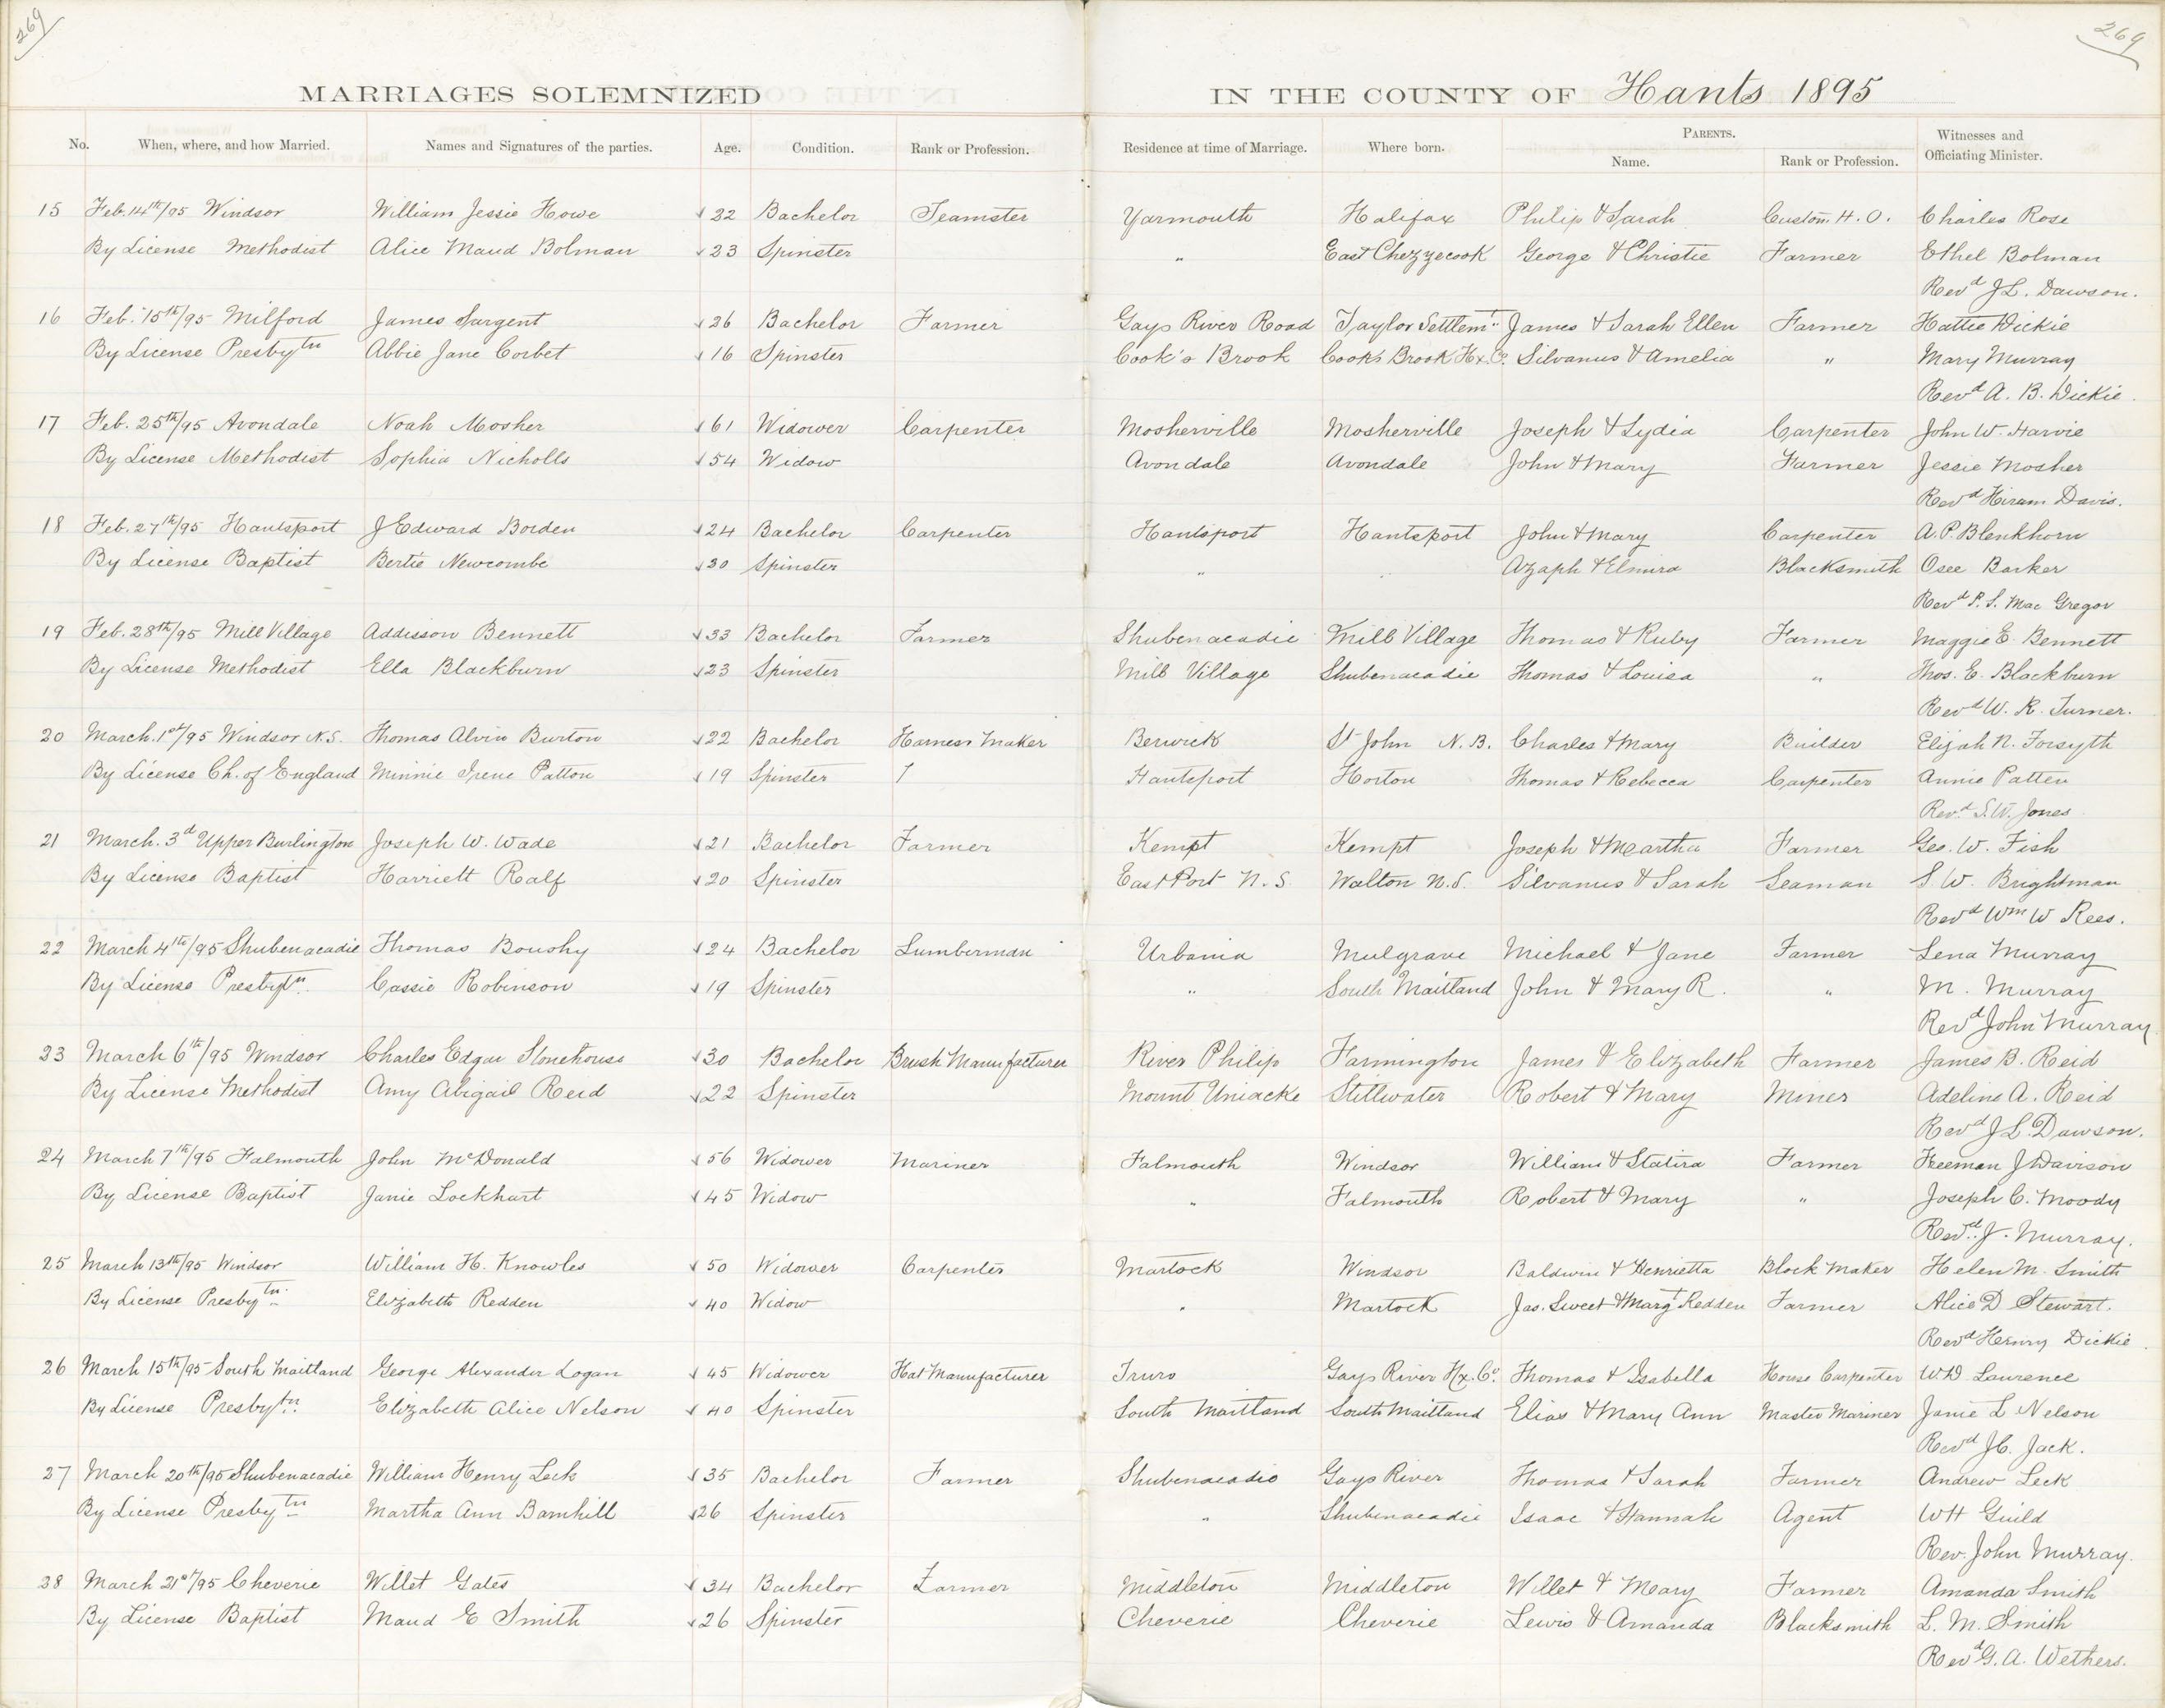 269
269
MARRIAGES SOLEMNIZED IN THE COUNTY OF Hants 1895
No. When, where, and how Married. Names and Signatures of the parties. Age. Condition. Rank or Profession. Residence at time of Marriage. Where born. PARENTS. Name. Rank or Profession. Witnesses and Officiating Minister.
15 Feb. 14th/95 Windsor William Jessie Howe 22 Bachelor Teamster Yarmouth Halifax Philip & Sarah Custom H. O. Charles Rose
By License Methodist Alice Maud Bolman 23 Spinster " East Chezzecook George & Christie Farmer Ethel Bolman
Revd J L. Dawson.
16 Feb. 15th/95 Milford James Sargent 26 Bachelor Farmer Gays River Road Taylor Settlemt James & Sarah Ellen Farmer Hattie Dickie
By License Presbytn Abbie Jane Corbet 16 Spinster Cook's Brook Cook's Brook Hx. Co. Silvanus & Amelia " Mary Murray
Revd A. B. Dickie.
17 Feb. 25th/95 Avondale Noah Mosher 61 Widower Carpenter Mosherville Mosherville Joseph & Lydia Carpenter John W. Harvie
By License Methodist Sophia Nicholls 54 Widow Avondale Avondale John & Mary Farmer Jessie Mosher
Revd Hiram Davis.
18 Feb. 27th/95 Hantsport J Edward Borden 24 Bachelor Carpenter Hantsport Hantsport John & Mary Carpenter A. P. Blenkhorn
By License Baptist Bertie Newcombe 30 Spinster " " Azaph & Elmira Blacksmith Osee Barker
Revd P. S. Mac Gregor
19 Feb. 28th/95 Mill Village Addisson Bennett 33 Bachelor Farmer Shubenacadie Mill Village Thomas & Ruby Farmer Maggie E Bennett
By License Methodist Ella Blackburn 23 Spinster Mill Village Shubenacadie Thomas & Louisa " Thos. E. Blackburn
Revd W. R. Turner.
20 March. 1st/95 Windsor N.S. Thomas Alvin Burton 22 Bachelor Harness Maker Berwick St John N. B. Charles & Mary Builder Elijah N. Forsyth
By License Ch. of England Minnie Irene Patton 19 Spinster Hantsport Horton Thomas & Rebecca Carpenter Annie Patten
Revd S. W. Jones
21 March. 3d Upper Burlington Joseph W. Wade 21 Bachelor Farmer Kempt Kempt Joseph & Meartha Farmer Geo. W. Fish
By License Baptist Harriett Ralf 20 Spinster East Port N. S. Walton N. S. Silvanus & Sarah Seaman S. W. Brightman
Revd Wm W Rees.
22 March 4th/95 Shubenacadie Thomas Boushy 24 Bachelor Lumberman Urbania Mulgrave Michael & Jane Farmer Lena Murray
By License Presbytn Cassie Robinson 19 Spinster " South Maitland John & Mary R. " M. Murray
Revd John Murray
23 March 6th/95 Windsor Charles Edgar Stonehouse 30 Bachelor Brush Manufacturer River Philip Farmington James & Elizabeth Farmer James B. Reid
By License Methodist Amy Abigail Reid 22 Spinster Mount Uniacke Stillwater Robert & Mary Miner Adeline A. Reid
Revd J L. Dawson.
24 March 7th/95 Falmouth John McDonald 56 Widower Mariner Falmouth Windsor William & Statira Farmer Freeman J Davison
By License Baptist Janie Lockhart 45 Widow " Falmouth Robert & Mary " Joseph C. Moody
Revd. J. Murray.
25 March 13th/95 Windsor William H. Knowles 50 Widower Carpenter Martock Windsor Baldwin & Henrietta Block Maker Helen M. Smith
By License Presbytn Elizabeth Redden 40 Widow " Martock Jas. Sweet & Margt Redden Farmer Alice D Stewart.
Revd Henry Dickie.
26 March 15th/95 South Maitland George Alexander Logan 45 Widower Hat Manufacturer Truro Gays River Hx. Co. Thomas & Isabella House Carpenter W D Laurence
By License Presbytn Elizabeth Alice Nelson 40 Spinster South Maitland South Maitland Elias & Mary Ann Master Mariner Janie L Nelson
Revd J C. Jack.
27 March 20th/95 Shubenacadie William Henry Leck 35 Bachelor Farmer Shubenacadie Gays River Thomas & Sarah Farmer Andrew Leck
By License Presbytn Martha Ann Barnhill 26 Spinster " Shubenacadie Isaac & Hannah Agent W H Guild
Rev. John Murray.
28 March 21st/95 Cheverie Willet Gates 34 Bachelor Farmer Middleton Middleton Willet & Mary Farmer Amanda Smith
By License Baptist Maud E Smith 26 Spinster Cheverie Cheverie Lewis & Amanda Blacksmith L. M. Smith
Revd G. A. Wethers.